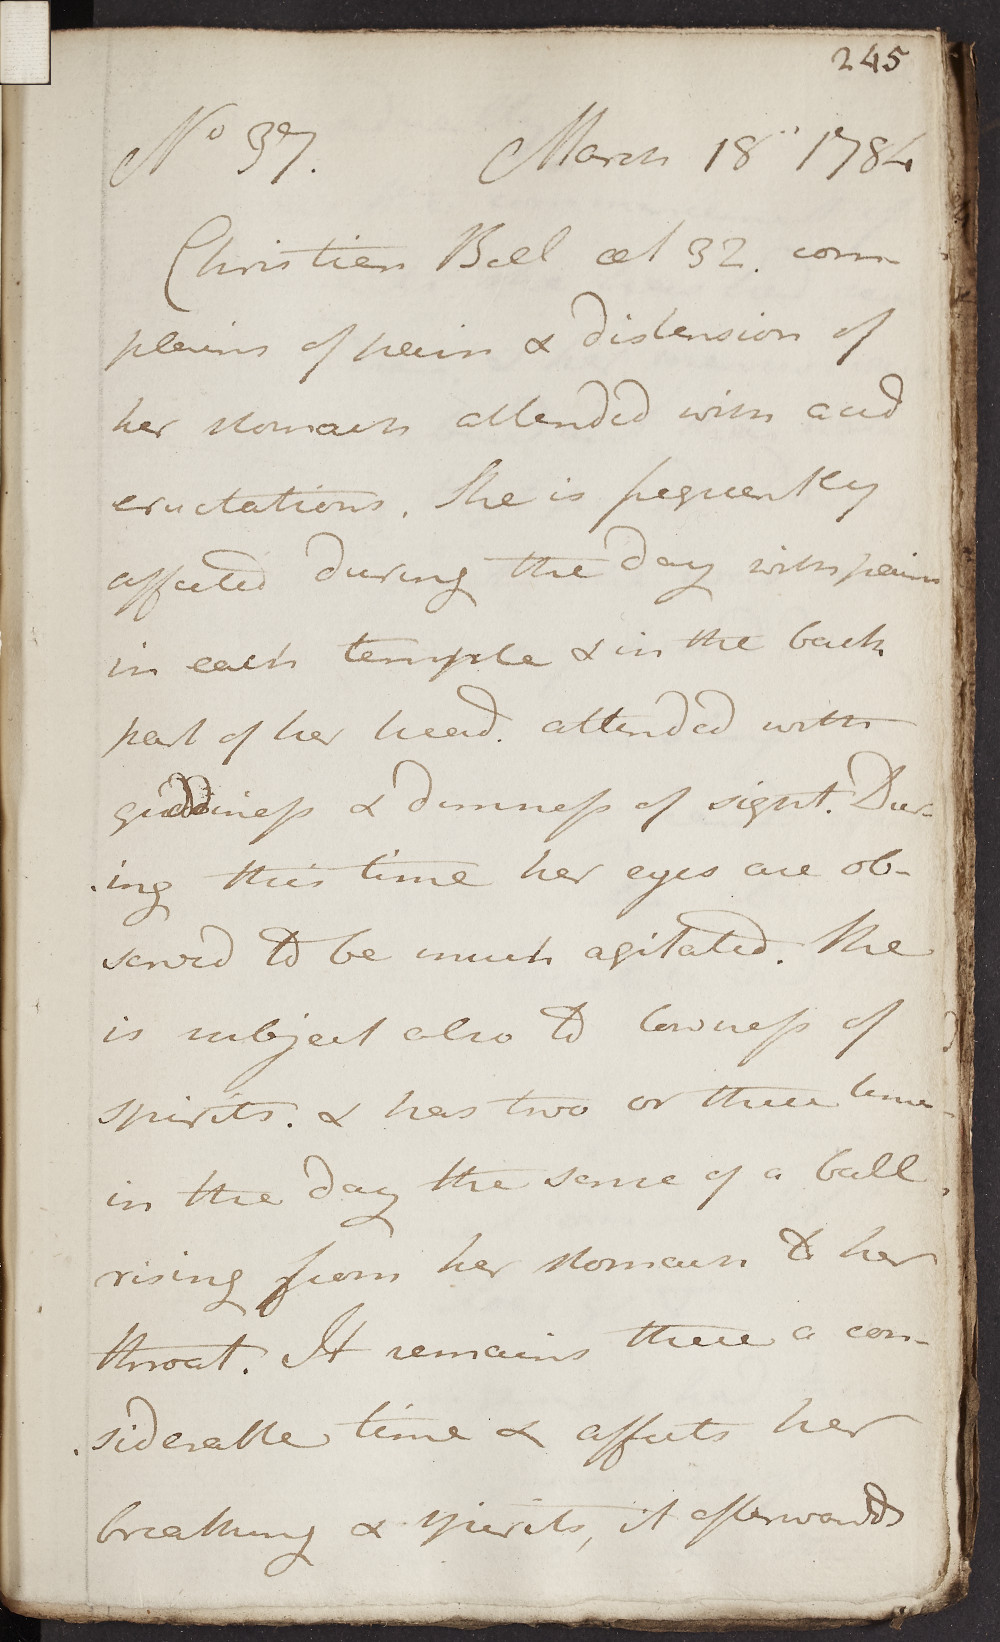 245
No 37. March 18th 1784
Christien Bell æt 32. com-
plains of pain & distension of
her stomach attended with acid
eructations. She is frequently
affected during the day with pains
in each temple & in the back
part of her head. attended with
giddiness & dimness of sight. Dur-
ing this time her eyes are ob-
served to be much agitated. She
is subject also to lowness of
spirits. & has two or three times
in the day the sense of a ball,
rising from her stomach to her
throat. It remains there a con-
siderable time & affects her
breathing & spirits, it afterwards